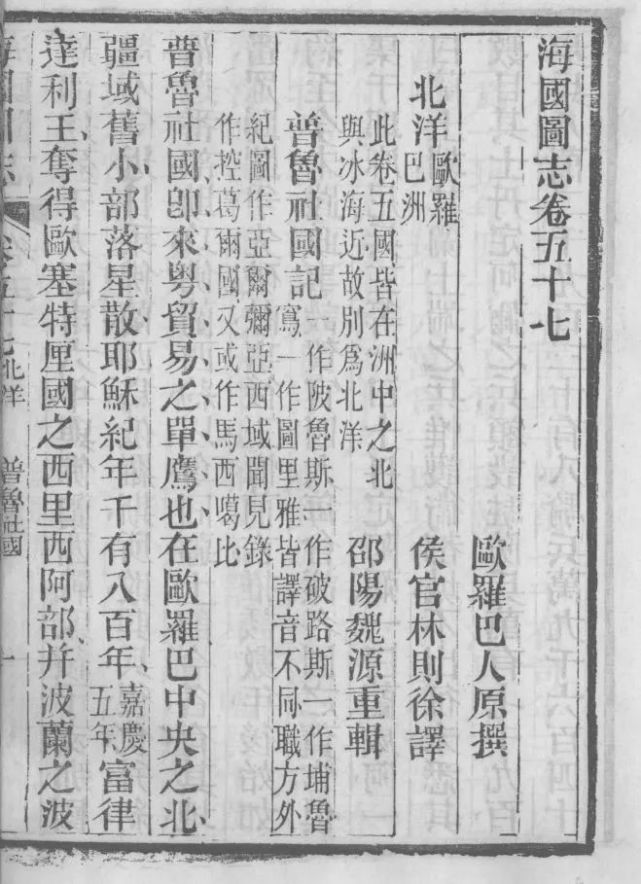 海國圖志卷五十七
歐羅巴人原撰
北洋歐羅巴洲
侯官林則徐譯
此卷五國皆在洲中之北
與冰海近故別爲北洋
邵陽魏源重輯
普魯社國記一作陂魯斯一作破路斯一作埔魯
寫一作圖里雅皆譯音不同職方外
紀圖作亞爾彌亞西域聞見錄
作控葛爾國又或作馬西噶比
普魯社國卽來粵貿易之單鷹也在歐羅巴中央之北
疆域舊小部落星散耶穌紀年千有八百年嘉慶五年富律
達利王奪得歐塞特厘國之西里西阿部并波蘭之波
海國圖志
卷五十七北洋 普魯社國
一